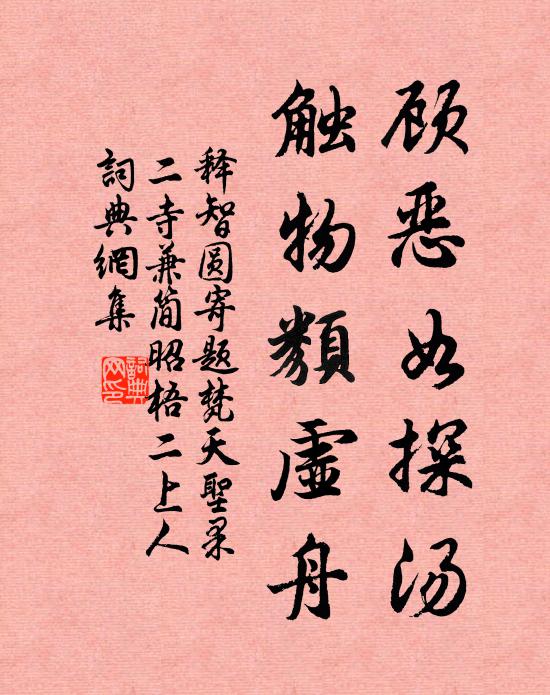 顾恶如探汤
触物类虚舟
释智圆寄题梵天聖果
二寺兼简昭梧二上人
词典網集
詞典网印